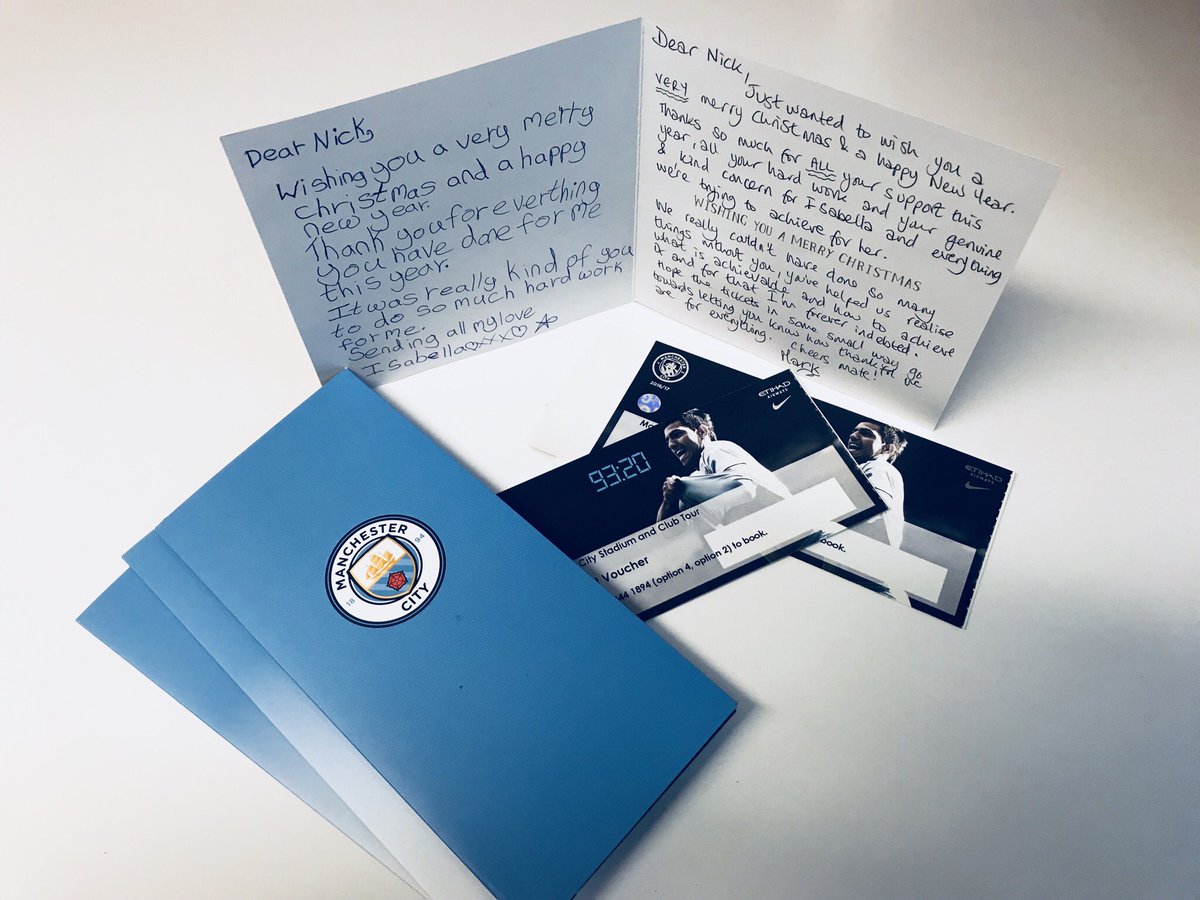 Dear Nick,
Wishing you a very merry
christmas and a happy
new year.
Thank you for everthing
you have done for me
this year.
It was really kind of you
to do so much hard work
for me.
Sending all my love
Isabella xxx
Dear Nick,
Just wanted to wish you a
VERY merry Christmas & a happy New Year.
Thanks so much for ALL your support this
year, all your hard work and your genuine
& kind concern for Isabella and everything
we're trying to achieve for her.
WISHING YOU A MERRY CHRISTMAS
We really couldn't have done so many
things without you, you've helped us realise
what is achievable and how to achieve
it and for that I'm forever indebted.
Hope the tickets in some small way go
towards letting you know how thankful we
are for everything. Cheers mate!
Mark
MANCHESTER
CITY
2016/17
ETIHAD
AIRWAYS
93:20
City Stadium and Club Tour
Voucher
44 1894 (option 4, option 2) to book.
ETIHAD
AIRWAYS
book.
MANCHESTER
18 94
CITY